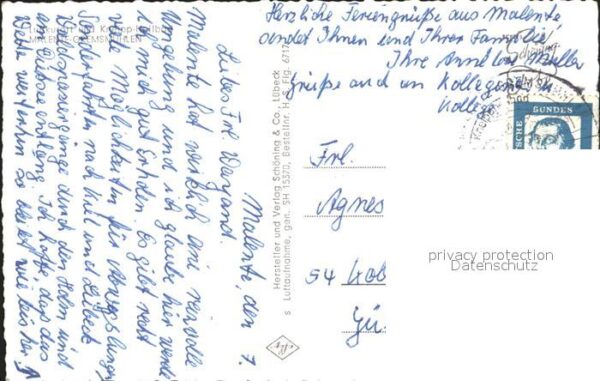 Luftkurort und Kneipp-Heilbad
MALENTE-GREMSMÜHLEN
Malente, den 7.
Liebes Frl. Weigand.
Malente hat wirklich eine reizvolle
Umgebung und ich glaube hier werde
ich mich gut erholen. Es gibt recht
viele Möglichkeiten für
Sonderfahrten nach Kiel und Lübeck
Waldspaziergänge durch den Holm und
am Dieksee entlang. Ich hoffe, daß das
Wetter weiterhin so bleibt wie bisher.
Herzliche Feriengrüße aus Malente
sendet Ihnen und Ihrer Familie
Ihre Annelore Müller
Grüße auch an Kolleginnen u.
Kollegen
Hersteller und Verlag Schöning & Co., Lübeck
s Luftaufnahme, gen. SH 15370, Bestellnr. H Flg. 6717
SCHE BUNDES
Frl.
Agnes
54 Kob
Gü.
privacy protection
Datenschutz